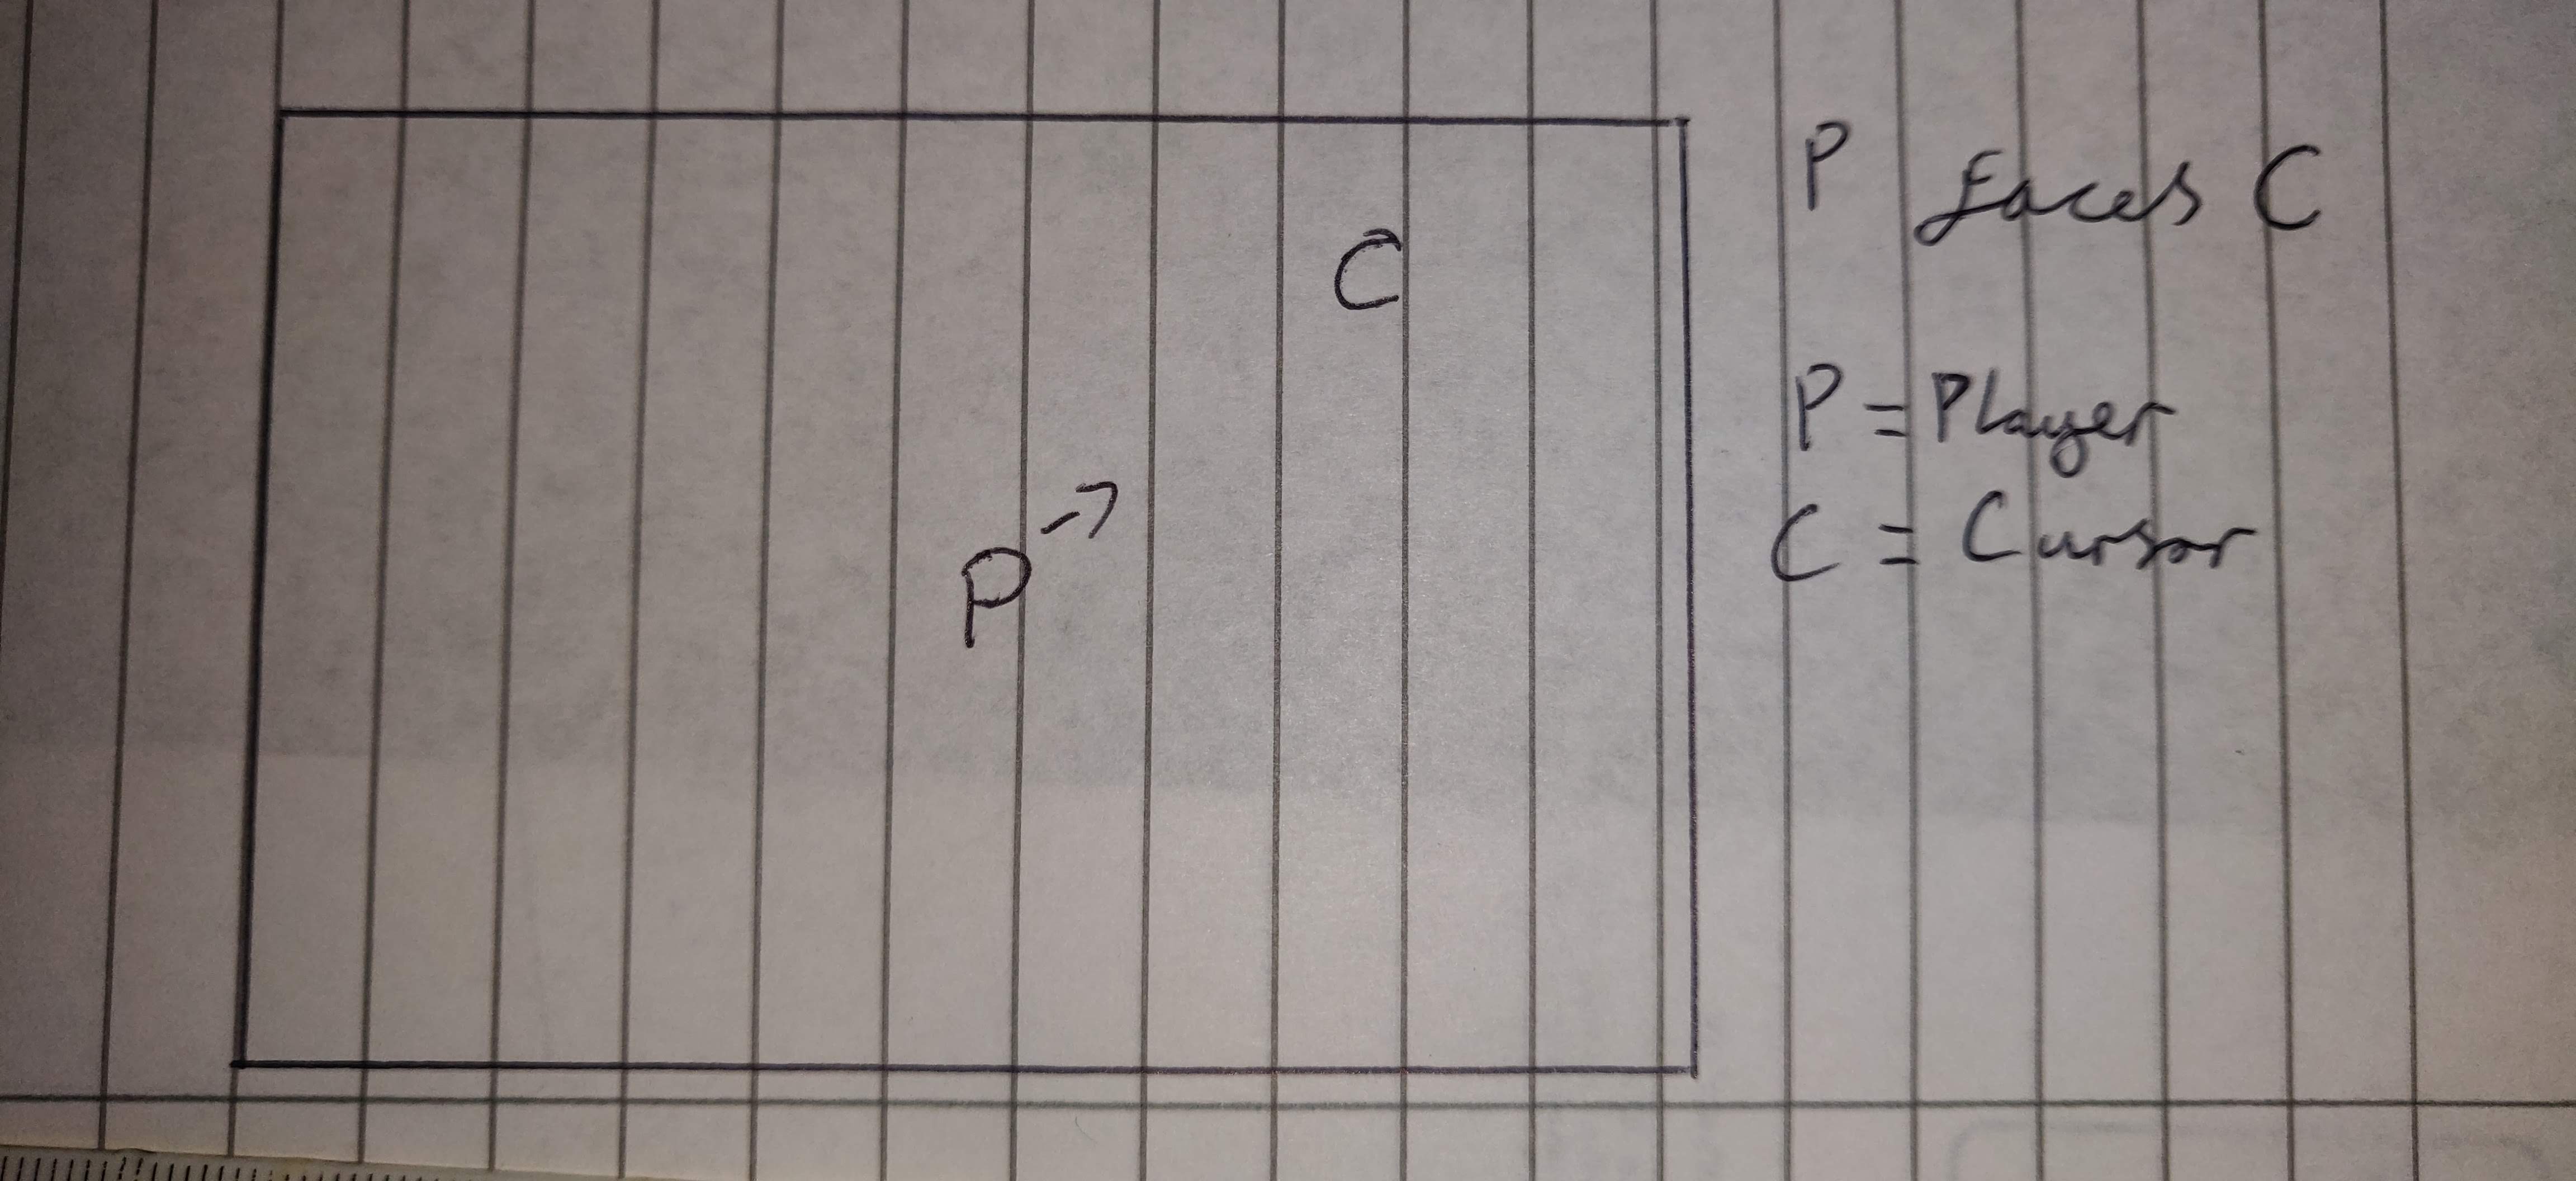 P faces C
C
P = Player
P →
C = Cursor